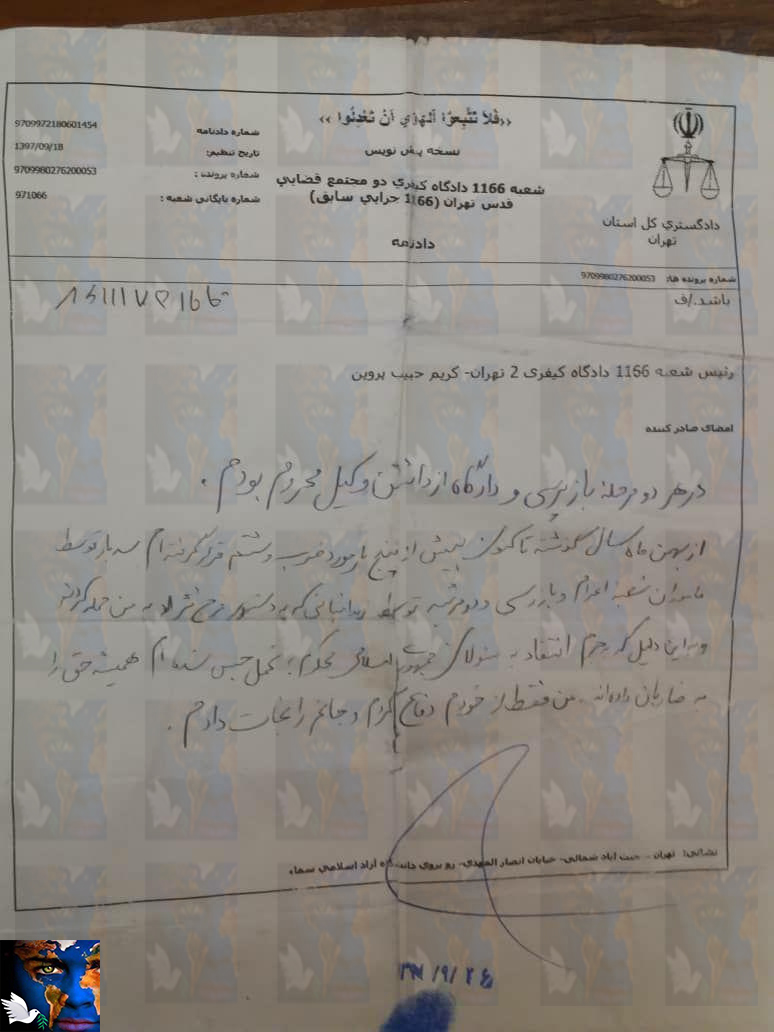 «فَلاَ تَتَّبِعُوا الْهَوَى أَنْ تَعْدِلُوا»
نسخه پیش نویس
شعبه 1166 دادگاه کیفری دو مجتمع قضایی
قدس تهران (1166 جزایی سابق)
دادنامه
دادگستری کل استان
تهران
شماره دادنامه 9709972180601454
تاریخ تنظیم: 1397/09/18
شماره پرونده: 9709980276200053
شماره بایگانی شعبه: 971066
شماره پرونده ها: 9709980276200053
باشد./ف
رئیس شعبه 1166 دادگاه کیفری 2 تهران- کریم حبیب پروین
امضای صادر کننده
در هر دو مرحله بازپرسی و دادگاه از داشتن وکیل محروم بودم.
از بهمن ماه سال گذشته تا کنون بیش از پنج بار مورد ضرب و شتم قرار گرفته ام سه بار توسط
ماموران شعبه اعزام و بازرسی و دو مرتبه توسط زندانبانی که به دستور به من حمله کردند
و به این دلیل که به جرم انتقاد به مسولان جمهوری اسلامی محکوم به تحمل حبس شده ام همیشه حق را
به ضاربان داده اند. من فقط از خودم دفاع کردم و جانم را نجات دادم.
نشانی: تهران - جنت آباد شمالی- خیابان انصار المهدی- رو بروی دانشگاه آزاد اسلامی سما،
97/9/26